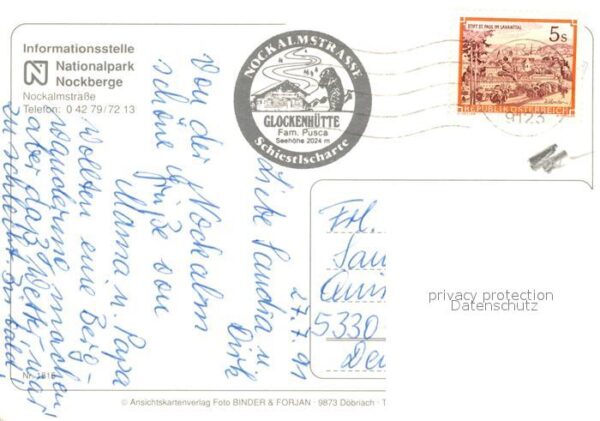 Informationsstelle
Nationalpark
Nockberge
Nockalmstraße
Telefon: 0 42 79/72 13
NOCKALMSTRASSE
GLOCKENHÜTTE
Fam. Pusca
Seehöhe 2024 m
Schiestlscharte
STIFT ST. PAUL IM LAVANTTAL
5s
REPUBLIK ÖSTERREICH
9123
27.7.91
Liebe Saudia u.
Dirk
Von der Nockalm
schöne Grüße von
Mama u. Papa
Wollten eine Berg-
wanderung machen
aber das Wetter war
zu schlecht. Bis bald!
Frl.
5330
privacy protection
Datenschutz
Nr. 1818
© Ansichtskartenverlag Foto BINDER & FORJAN · 9873 Döbriach